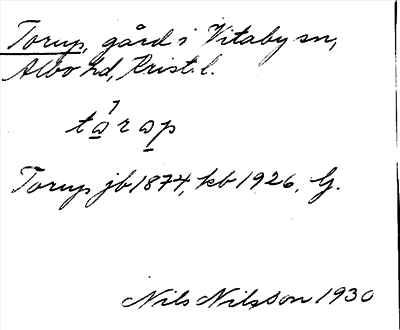 Torup, gård i Vitaby sn,
Albo hd, Krist. l.
to̲ro̲p
Torup jb 1874, kb 1926, G.
Nils Nilsson 1930